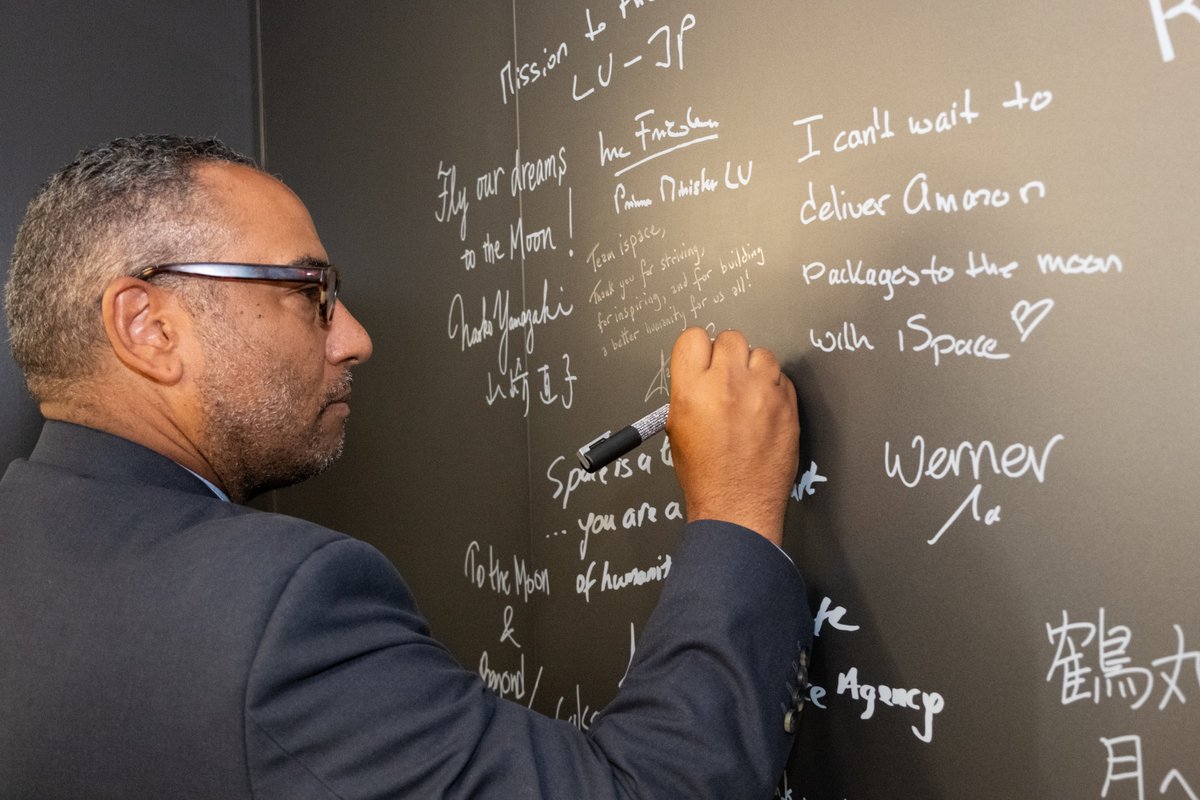 Mission to the
LU-JP
Luc Frieden
Prime Minister LU
Fly our dreams
to the Moon!
Naoko Yamazaki
山崎直子
Team ispace,
Thank you for striving,
for inspiring, and for building
a better humanity for us all!
I can't wait to
deliver Amazon
packages to the moon
with iSpace
Werner
Space is a
... you are a
of humanit
To the Moon
&
Beyond
Agency
鶴丸
月へ